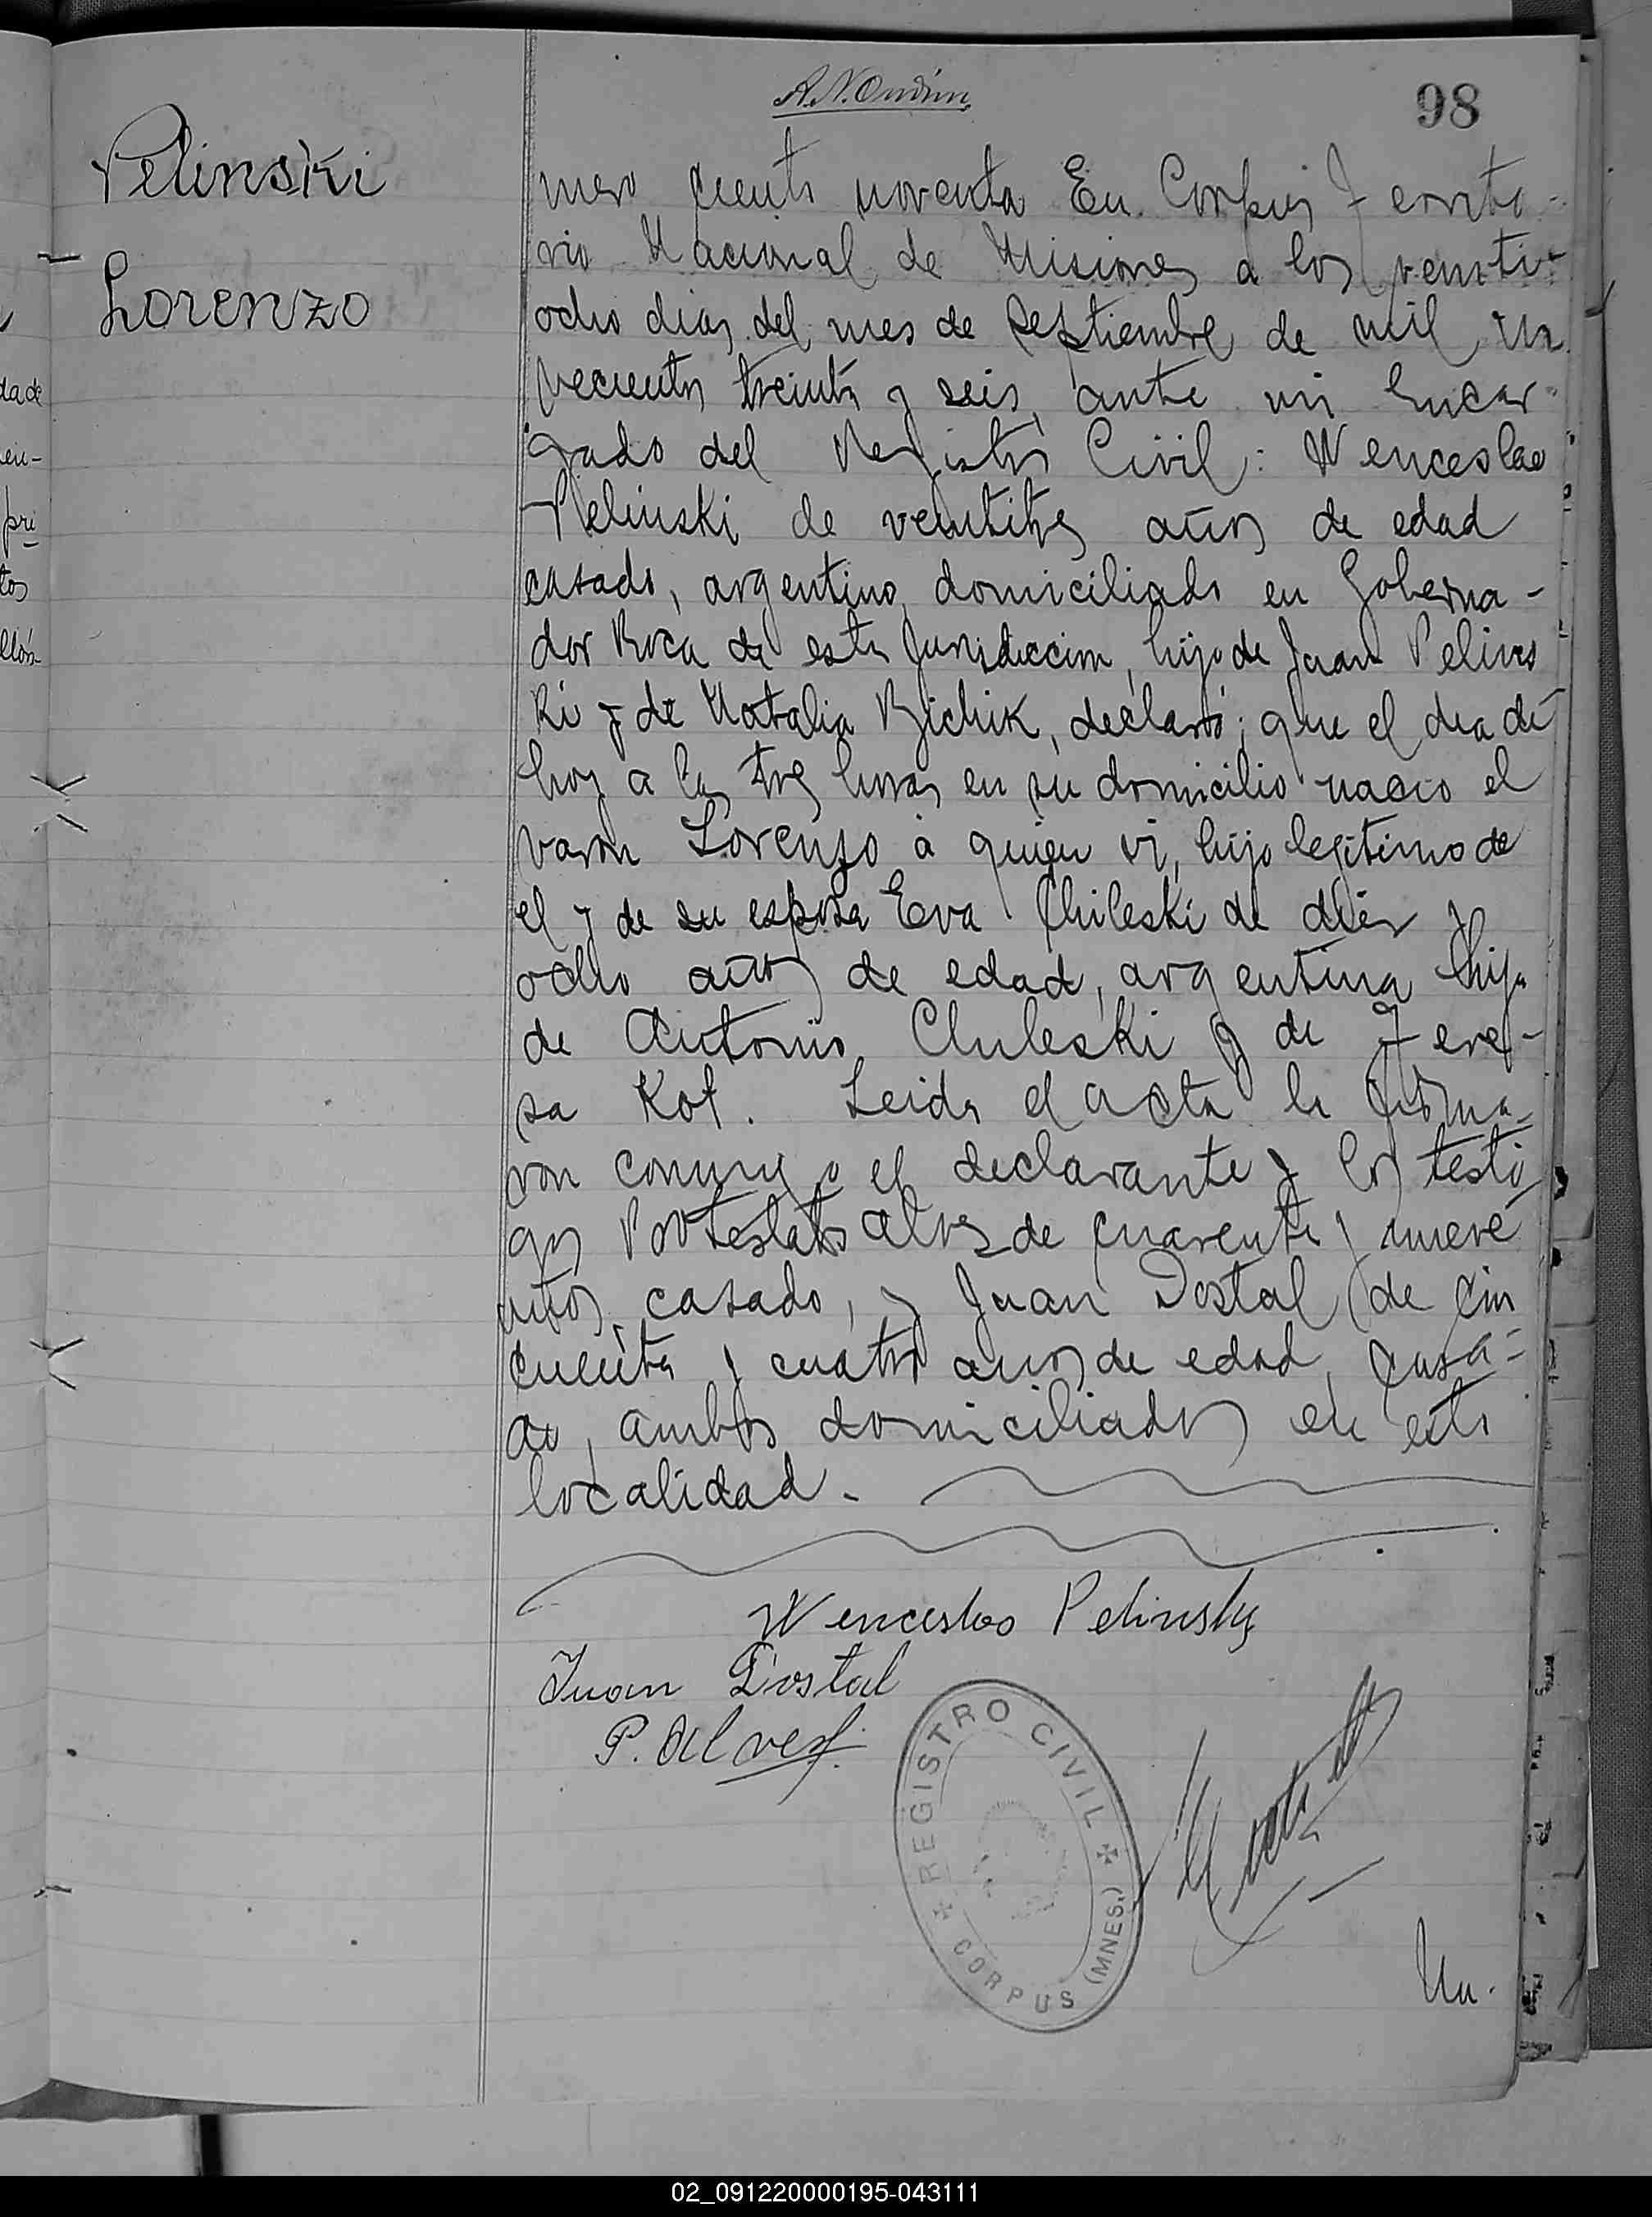 98
Pelinski
Lorenzo
mero ciento noventa En Corpus Territo-
rio Nacional de Misiones a los veinti-
ocho dias del mes de Septiembre de mil no
vecientos treinta y seis, ante mi Encar-
gado del Registro Civil: Wenceslao
Pelinski de veintitres años de edad
casado, argentino, domiciliado en Goberna-
dor Roca de esta Jurisdiccion, hijo de Juan Pelins
ki y de Natalia Bichik, declaró; que el dia de
hoy a las tres horas en su domicilio nacio el
varon Lorenzo a quien vi, hijo legitimo de
el y de su esposa Eva Chileski de diez y
ocho años de edad, argentina hija
de Antonio Chuleski y de Tere-
sa Kot. Leida el acta la firma-
ron conmigo el declarante y los testi
gos Protestato Alves de cuarenta y nueve
años, casado, y Juan Dostal de cin
cuenta y cuatro años de edad, casa-
do, ambos domiciliados en esta
localidad.
Wenceslao Pelinsky
Juan Dostal
P. Alves.
REGISTRO CIVIL
CORPUS (MNES.)
Nu.
02_091220000195-043111